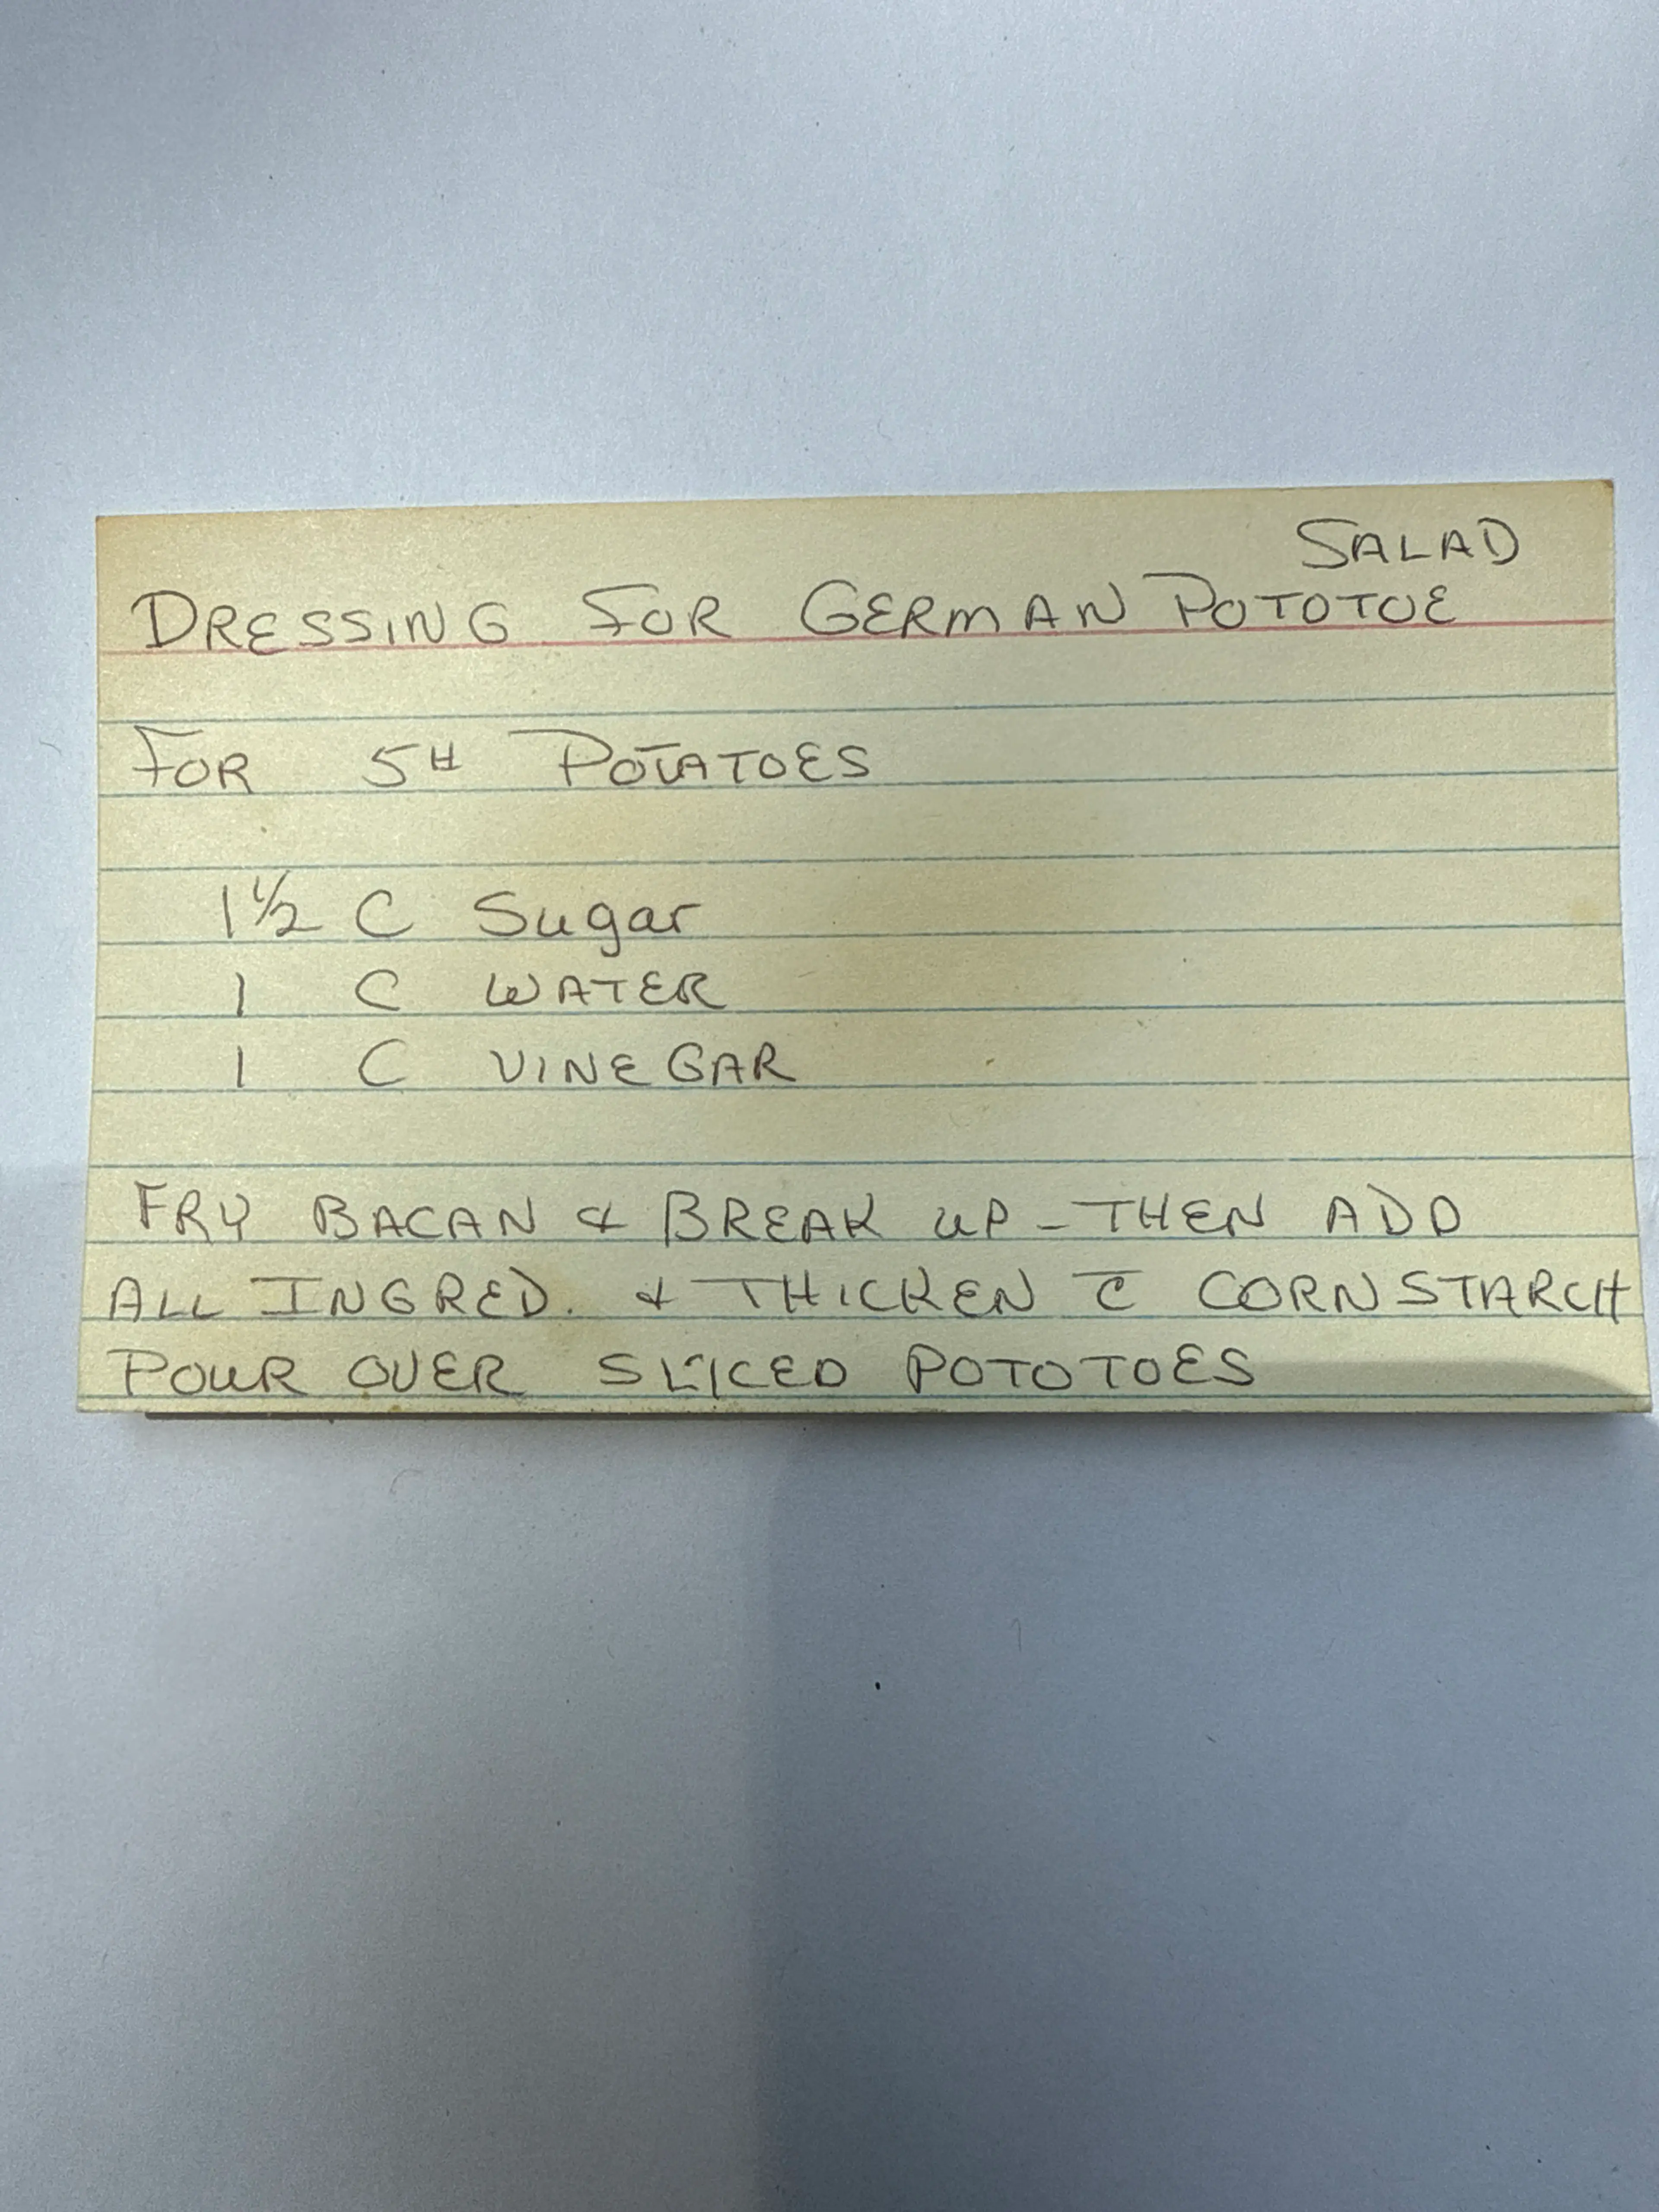 SALAD
DRESSING FOR GERMAN POTOTOE
FOR 5# POTATOES
1½ C Sugar
1 C WATER
1 C VINEGAR
FRY BACAN & BREAK UP - THEN ADD
ALL INGRED. & THICKEN c̄ CORNSTARCH
POUR OVER SLICED POTOTOES